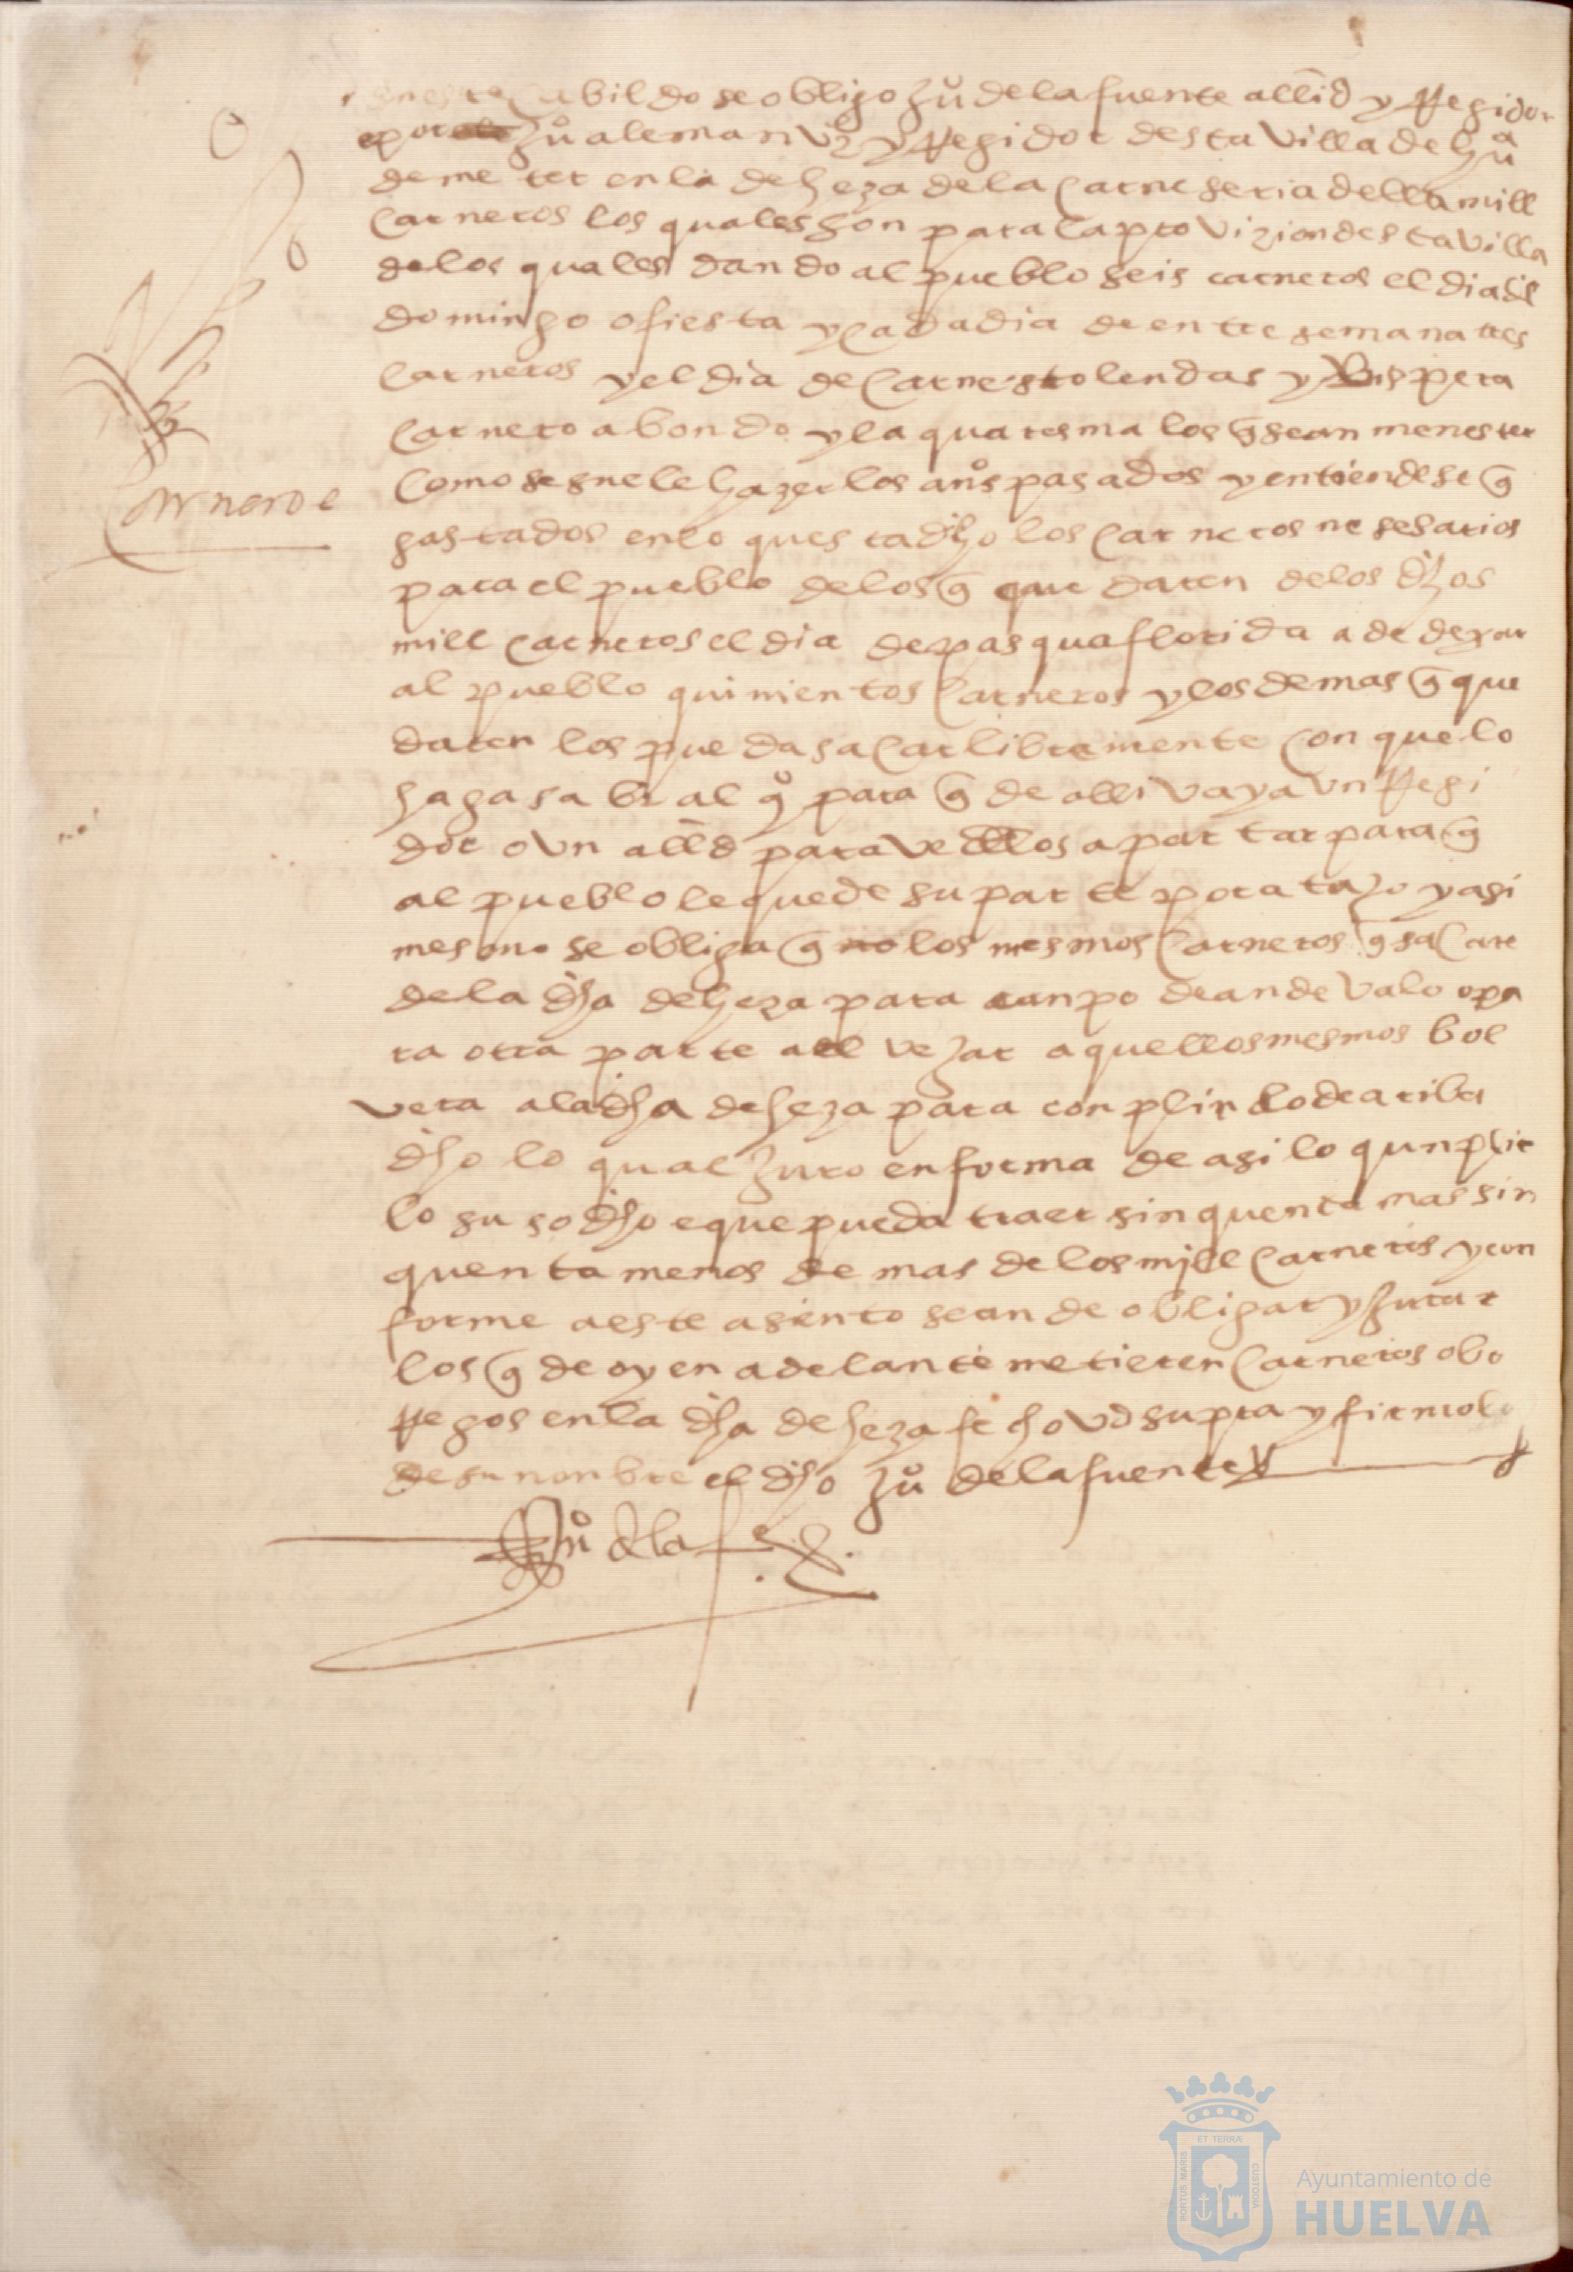 en este cabildo se obligo Juº de la fuente alld y Regidor
e por Juº aleman vzº y Regidor desta villa de hua
de meter en la deheza de la carneseria della mill
carneros los quales son para la provizion desta villa
de los quales dando al pueblo seis carneros el dia del
domingo o fiesta y cada dia de entre semana tres
carneros y el dia de carnestolendas y bispera
carnero abondo y la quaresma los q sean menester
como se suele hazer los años pasados y entiendese q
Carneros
gastados en lo questa dho los carneros nesesarios
para el pueblo de los q que daren de los dhos
mill carneros el dia de pasqua florida a de dexar
al pueblo quinientos carneros y los demas q que
daren los pueda sacar libremente con que lo
haga saber al qº para q de alli vaya un Regi
dor o un alld para vellos apartar para q
al pueblo le quede su parte por a razo y asi
mesmo se obliga q los mesmos carneros q sacare
de la dha deheza para canpo de andevalo o pa
ra otra parte aquellos mesmos bol
vera a la dha deheza para conplir lo de ariba
dho lo qual Juro en forma de asi lo qunplir
lo susodho e que pueda traer sinquenta mas sin
quenta menos de mas de los mill carneros y con
forme a este asiento sean de obligar y Jurar
los q de oy en adelante metieren carneros o bo
Regos en la dha deheza fecho ud supra y firmolo
de su nonbre el dho Juº de la fuente
Juº de la fe
PORTUS MARIS
ET TERRA
CUSTODIA
Ayuntamiento de
HUELVA